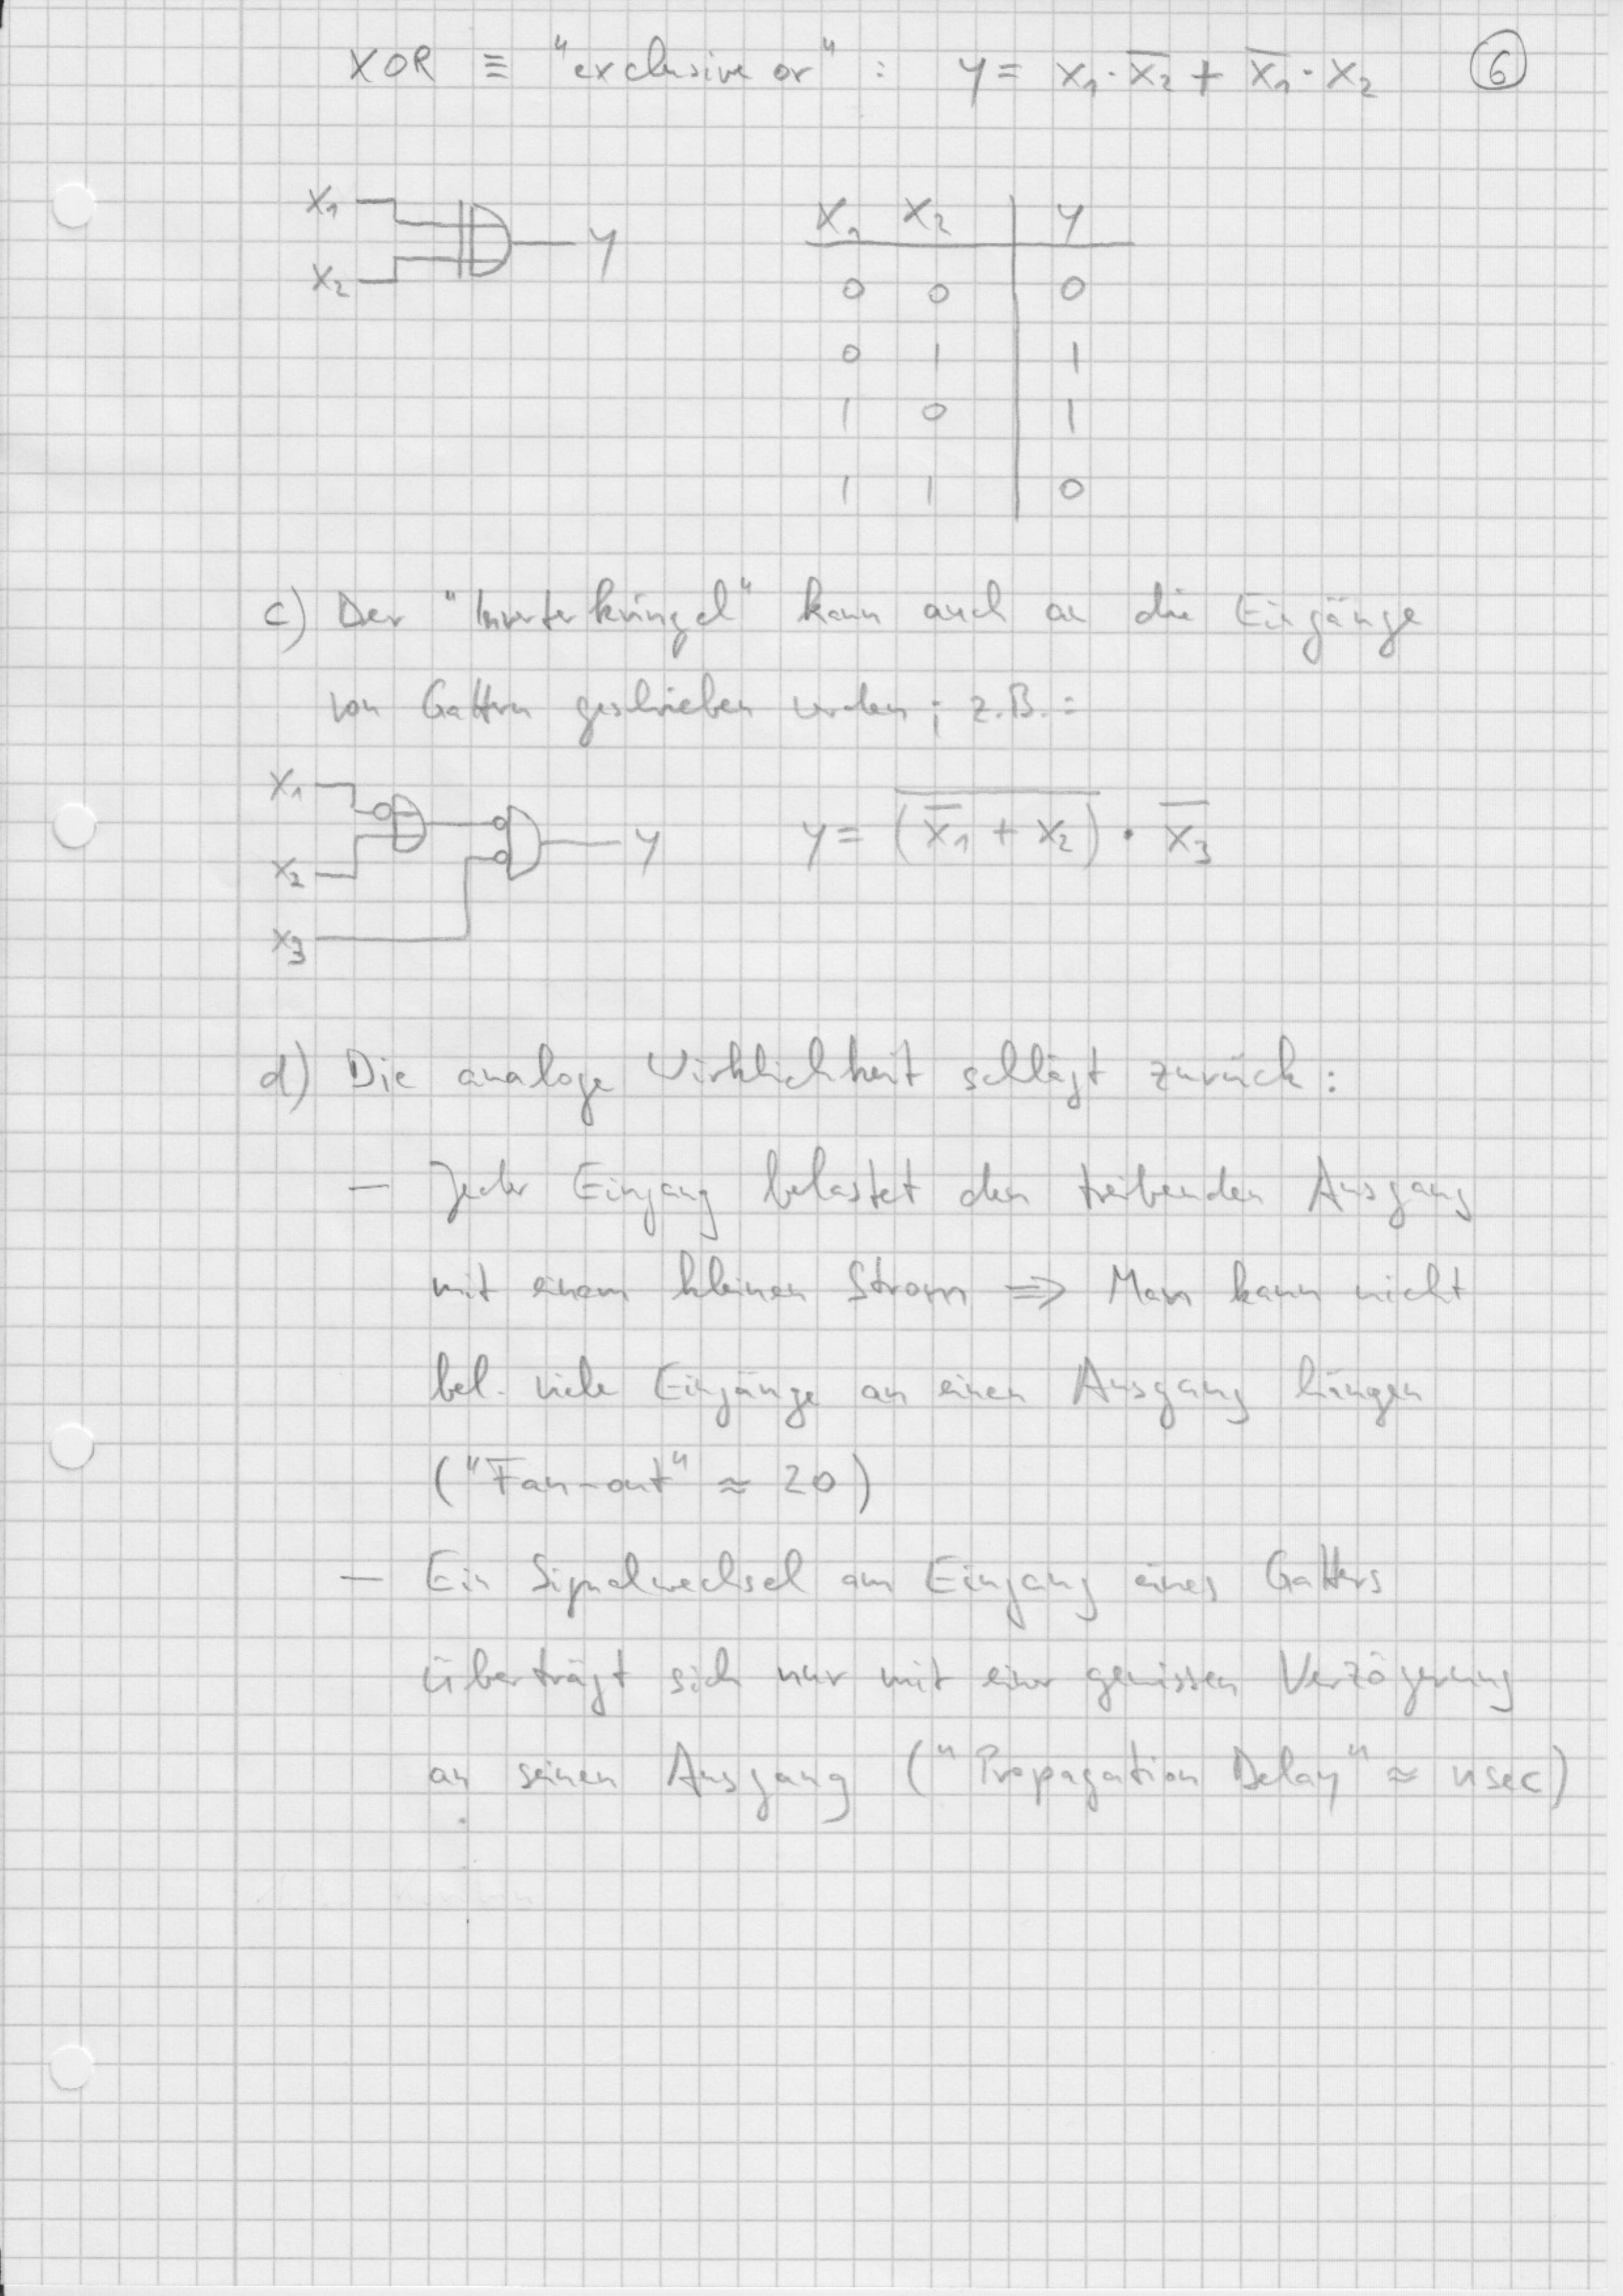 XOR ≡ "exclusive or" : y = x₁ · x̅₂ + x̅₁ · x₂ ⑥
x₁
x₂
y
x₁ x₂ y
0 0 0
0 1 1
1 0 1
1 1 0
c) Der "Inverterkringel" kann auch an die Eingänge
von Gattern geschrieben werden; z.B.:
x₁
x₂
x₃
y
y = \overline{(\overline{x₁} + x₂)} · \overline{x₃}
d) Die analoge Wirklichkeit schlägt zurück:
— Jeder Eingang belastet den treibenden Ausgang
mit einem kleinen Strom ⇒ Man kann nicht
bel. viele Eingänge an einen Ausgang hängen
("Fan-out" ≈ 20)
— Ein Signalwechsel am Eingang eines Gatters
überträgt sich nur mit einer gewissen Verzögerung
an seinen Ausgang ("Propagation Delay" ≈ nsec)